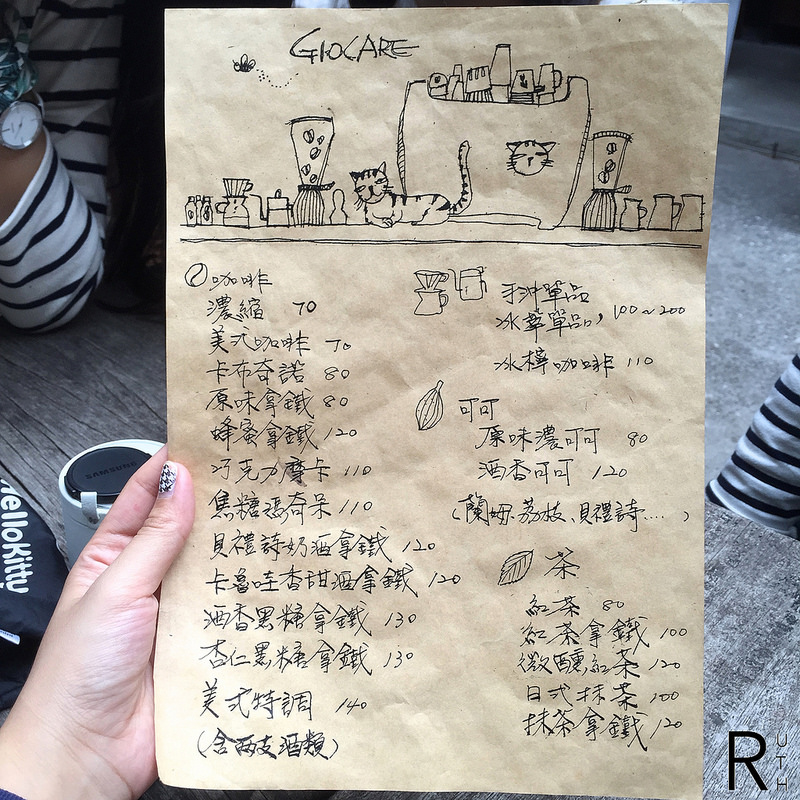 GIOCARE
咖啡
濃縮 70
美式咖啡 70
卡布奇諾 80
原味拿鐵 80
蜂蜜拿鐵 120
巧克力摩卡 110
焦糖瑪奇朵 110
貝禮詩奶酒拿鐵 120
卡魯哇香甜酒拿鐵 120
酒香黑糖拿鐵 130
杏仁黑糖拿鐵 130
美式特調 140
(含兩支酒類)
手沖單品
冰萃單品, 100~200
冰檸咖啡 110
可可
原味濃可可 80
酒香可可 120
(蘭姆.荔枝.貝禮詩....)
茶
紅茶 80
紅茶拿鐵 100
微醺紅茶 120
日式抹茶 100
抹茶拿鐵 120
SAMSUNG
HelloKitty
RUTH